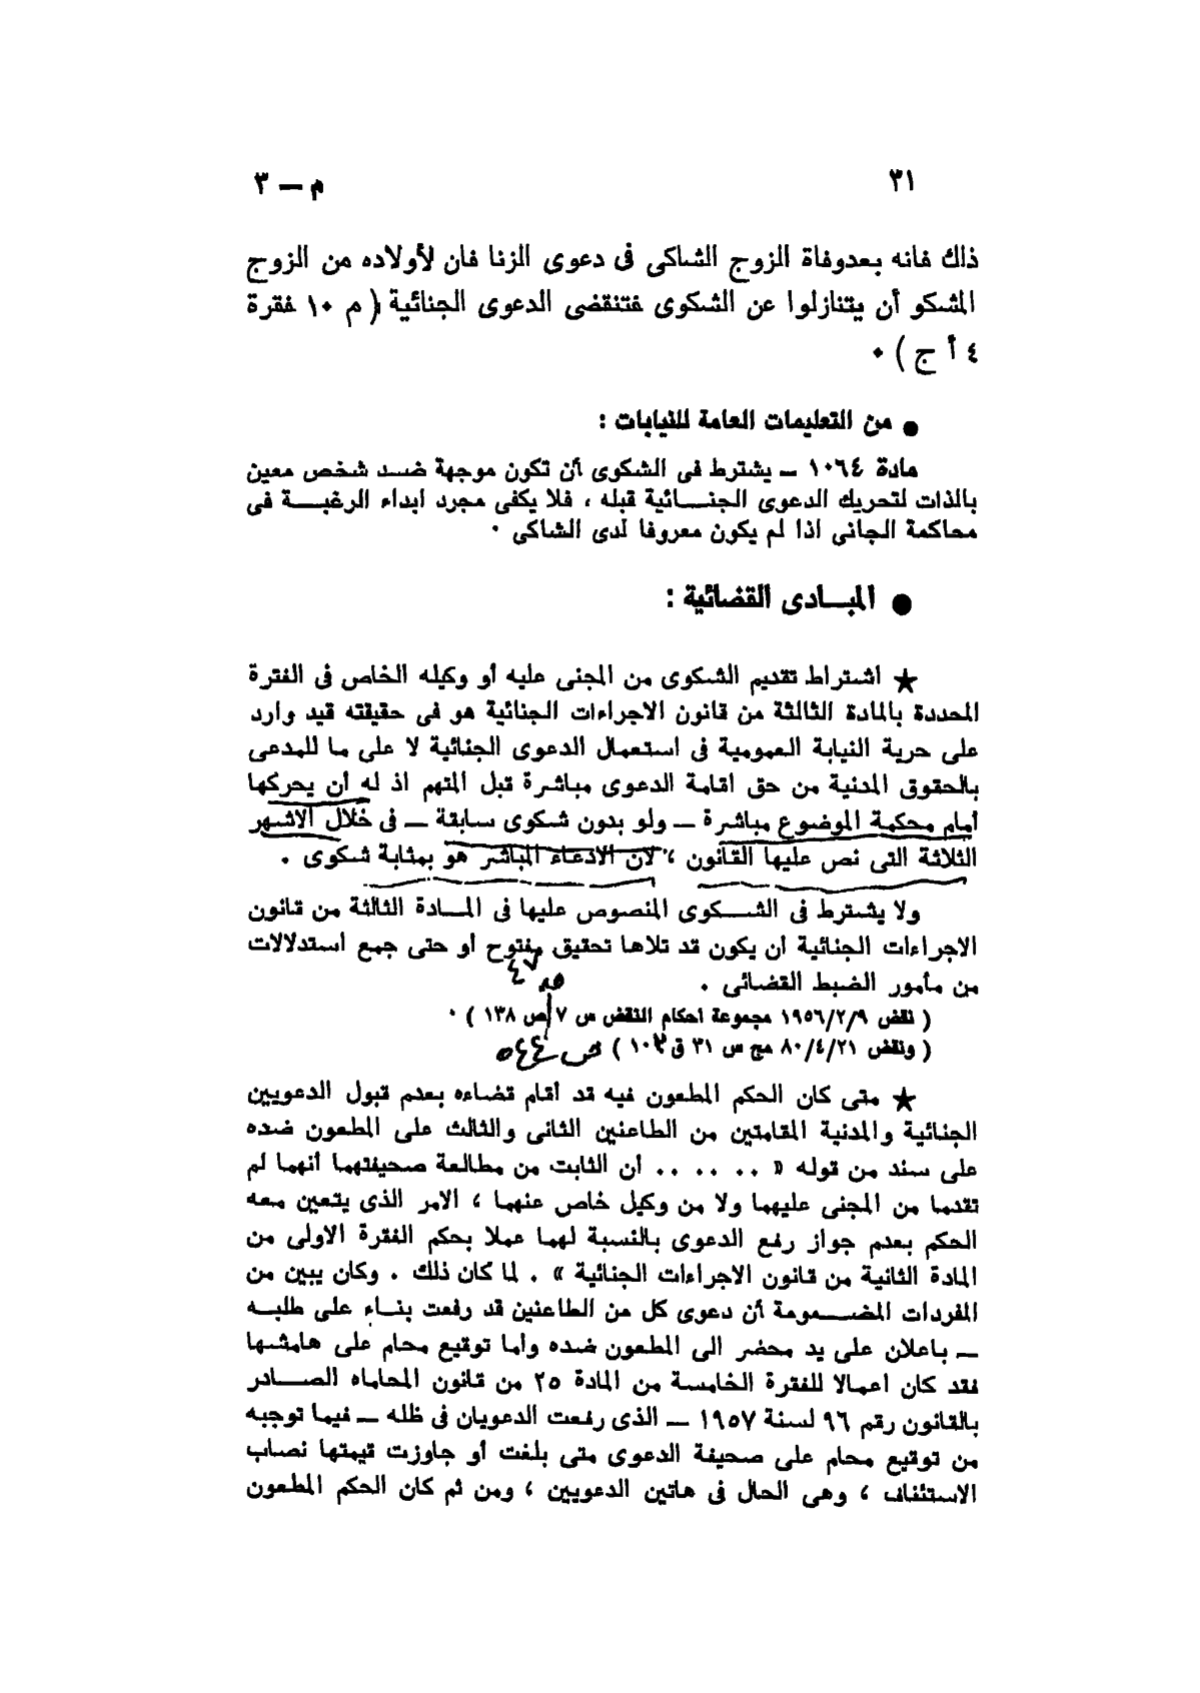 ٣١
م — ٣
ذلك فانه بعدوفاة الزوج الشاكى فى دعوى الزنا فان لأولاده من الزوج
المشكو أن يتنازلوا عن الشكوى فتنقضى الدعوى الجنائية ( م ١٠ فقرة
٤ أ ج ) ٠
● من التعليمات العامة للنيابات :
مادة ١٠٦٤ — يشترط فى الشكوى أن تكون موجهة ضد شخص معين
بالذات لتحريك الدعوى الجنائية قبله ، فلا يكفى مجرد ابداء الرغبة فى
محاكمة الجانى اذا لم يكون معروفا لدى الشاكى ٠
● المبادى القضائية :
★ اشتراط تقديم الشكوى من المجنى عليه أو وكيله الخاص فى الفترة
المحددة بالمادة الثالثة من قانون الاجراءات الجنائية هو فى حقيقته قيد وارد
على حرية النيابة العمومية فى استعمال الدعوى الجنائية لا على ما للمدعى
بالحقوق المدنية من حق اقامة الدعوى مباشرة قبل المتهم اذ له أن يحركها
أمام محكمة الموضوع مباشرة — ولو بدون شكوى سابقة — فى خلال الاشهر
الثلاثة التى نص عليها القانون ، لان الادعاء المباشر هو بمثابة شكوى .
ولا يشترط فى الشكوى المنصوص عليها فى المادة الثالثة من قانون
الاجراءات الجنائية أن يكون قد تلاها تحقيق مفتوح أو حتى جمع استدلالات
من مأمور الضبط القضائى .
( نقض ١٩٥٦/٢/٩ مجموعة أحكام النقض س ٧ ص ١٣٨ ) ٠
( ونقض ٨٠/٤/٢١ مج س ٣١ ق ١٠٣ ) ص ٥٤٤
★ متى كان الحكم المطعون فيه قد أقام قضاءه بعدم قبول الدعويين
الجنائية والمدنية المقامتين من الطاعنين الثانى والثالث على المطعون ضده
على سند من قوله « .. .. .. أن الثابت من مطالعة صحيفتهما أنهما لم
تقدما من المجنى عليهما ولا من وكيل خاص عنهما ، الامر الذى يتعين معه
الحكم بعدم جواز رفع الدعوى بالنسبة لهما عملا بحكم الفقرة الاولى من
المادة الثانية من قانون الاجراءات الجنائية » . لما كان ذلك . وكان يبين من
المفردات المضمومة أن دعوى كل من الطاعنين قد رفعت بناء على طلبه
— باعلان على يد محضر الى المطعون ضده وأما توقيع محام على هامشها
فقد كان اعمالا للفقرة الخامسة من المادة ٢٥ من قانون المحاماه الصادر
بالقانون رقم ٩٦ لسنة ١٩٥٧ — الذى رفعت الدعويان فى ظله — فيما توجبه
من توقيع محام على صحيفة الدعوى متى بلغت أو جاوزت قيمتها نصاب
الاستئناف ، وهى الحال فى هاتين الدعويين ، ومن ثم كان الحكم المطعون